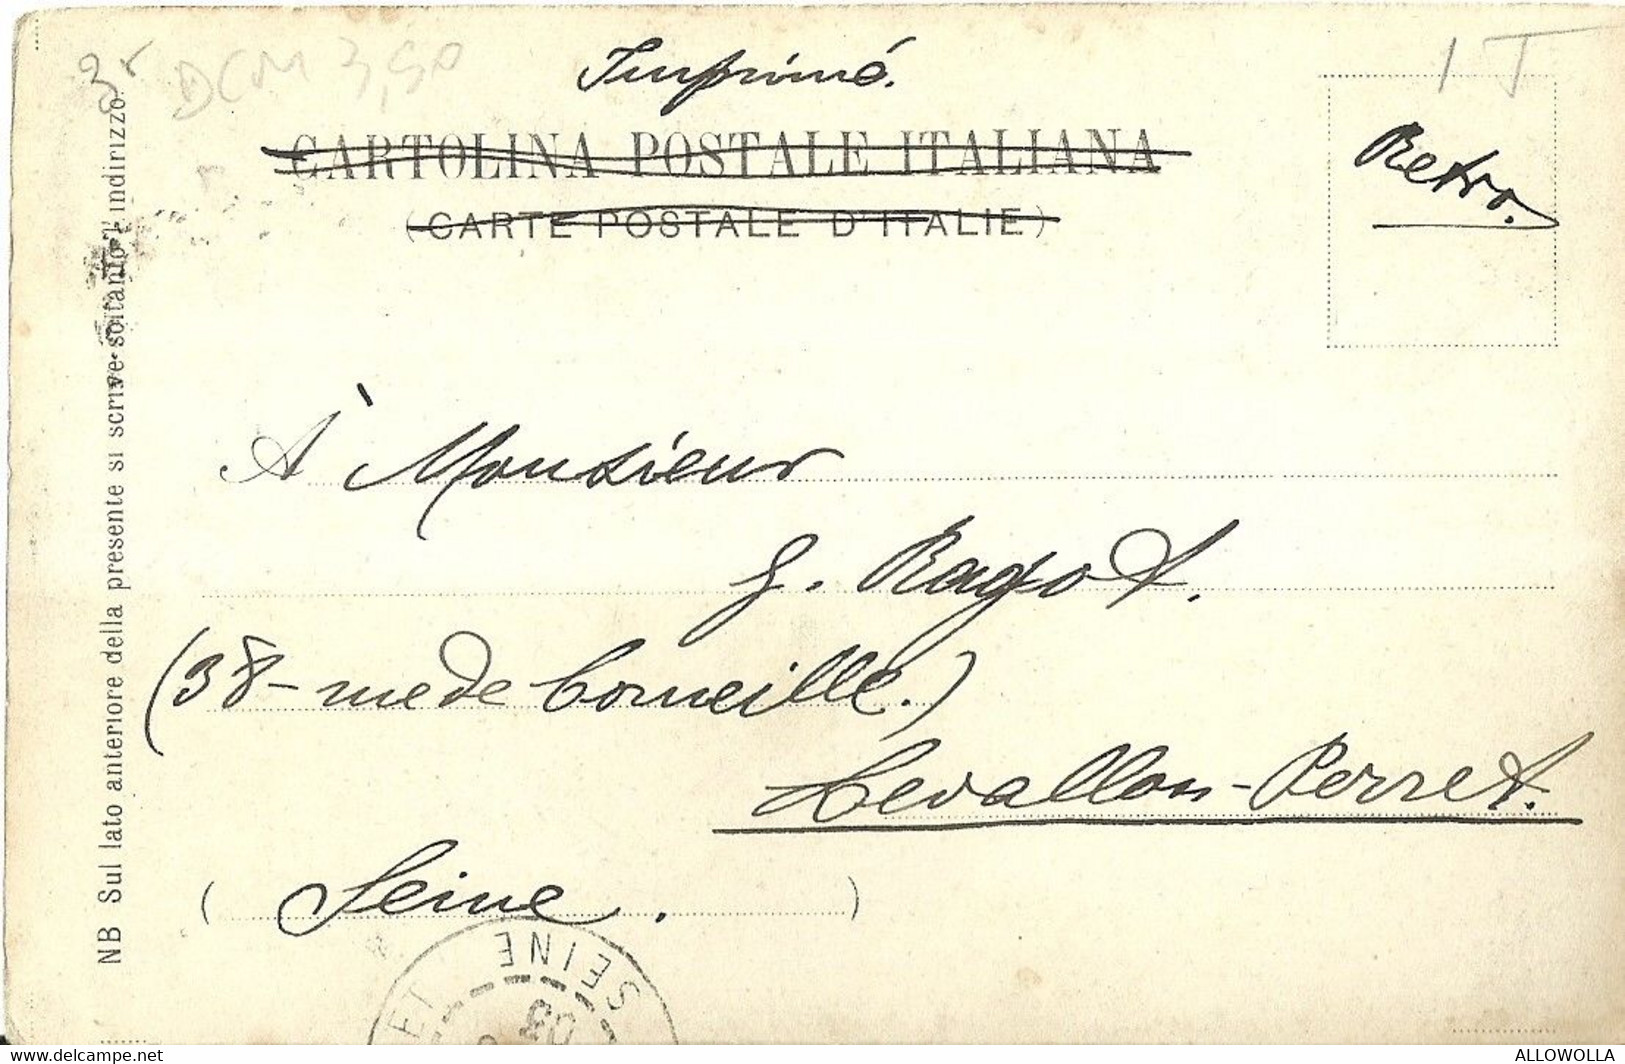 DCM 3,50
1 T
Imprimé.
CARTOLINA POSTALE ITALIANA
(CARTE POSTALE D'ITALIE)
Retro.
NB Sul lato anteriore della presente si scrive soltanto l'indirizzo
À Monsieur
G. Ragot.
(38 - rue de Corneille.)
Levallon-Perret.
( Seine. )
ET SEINE
03
ALLOWOLLA